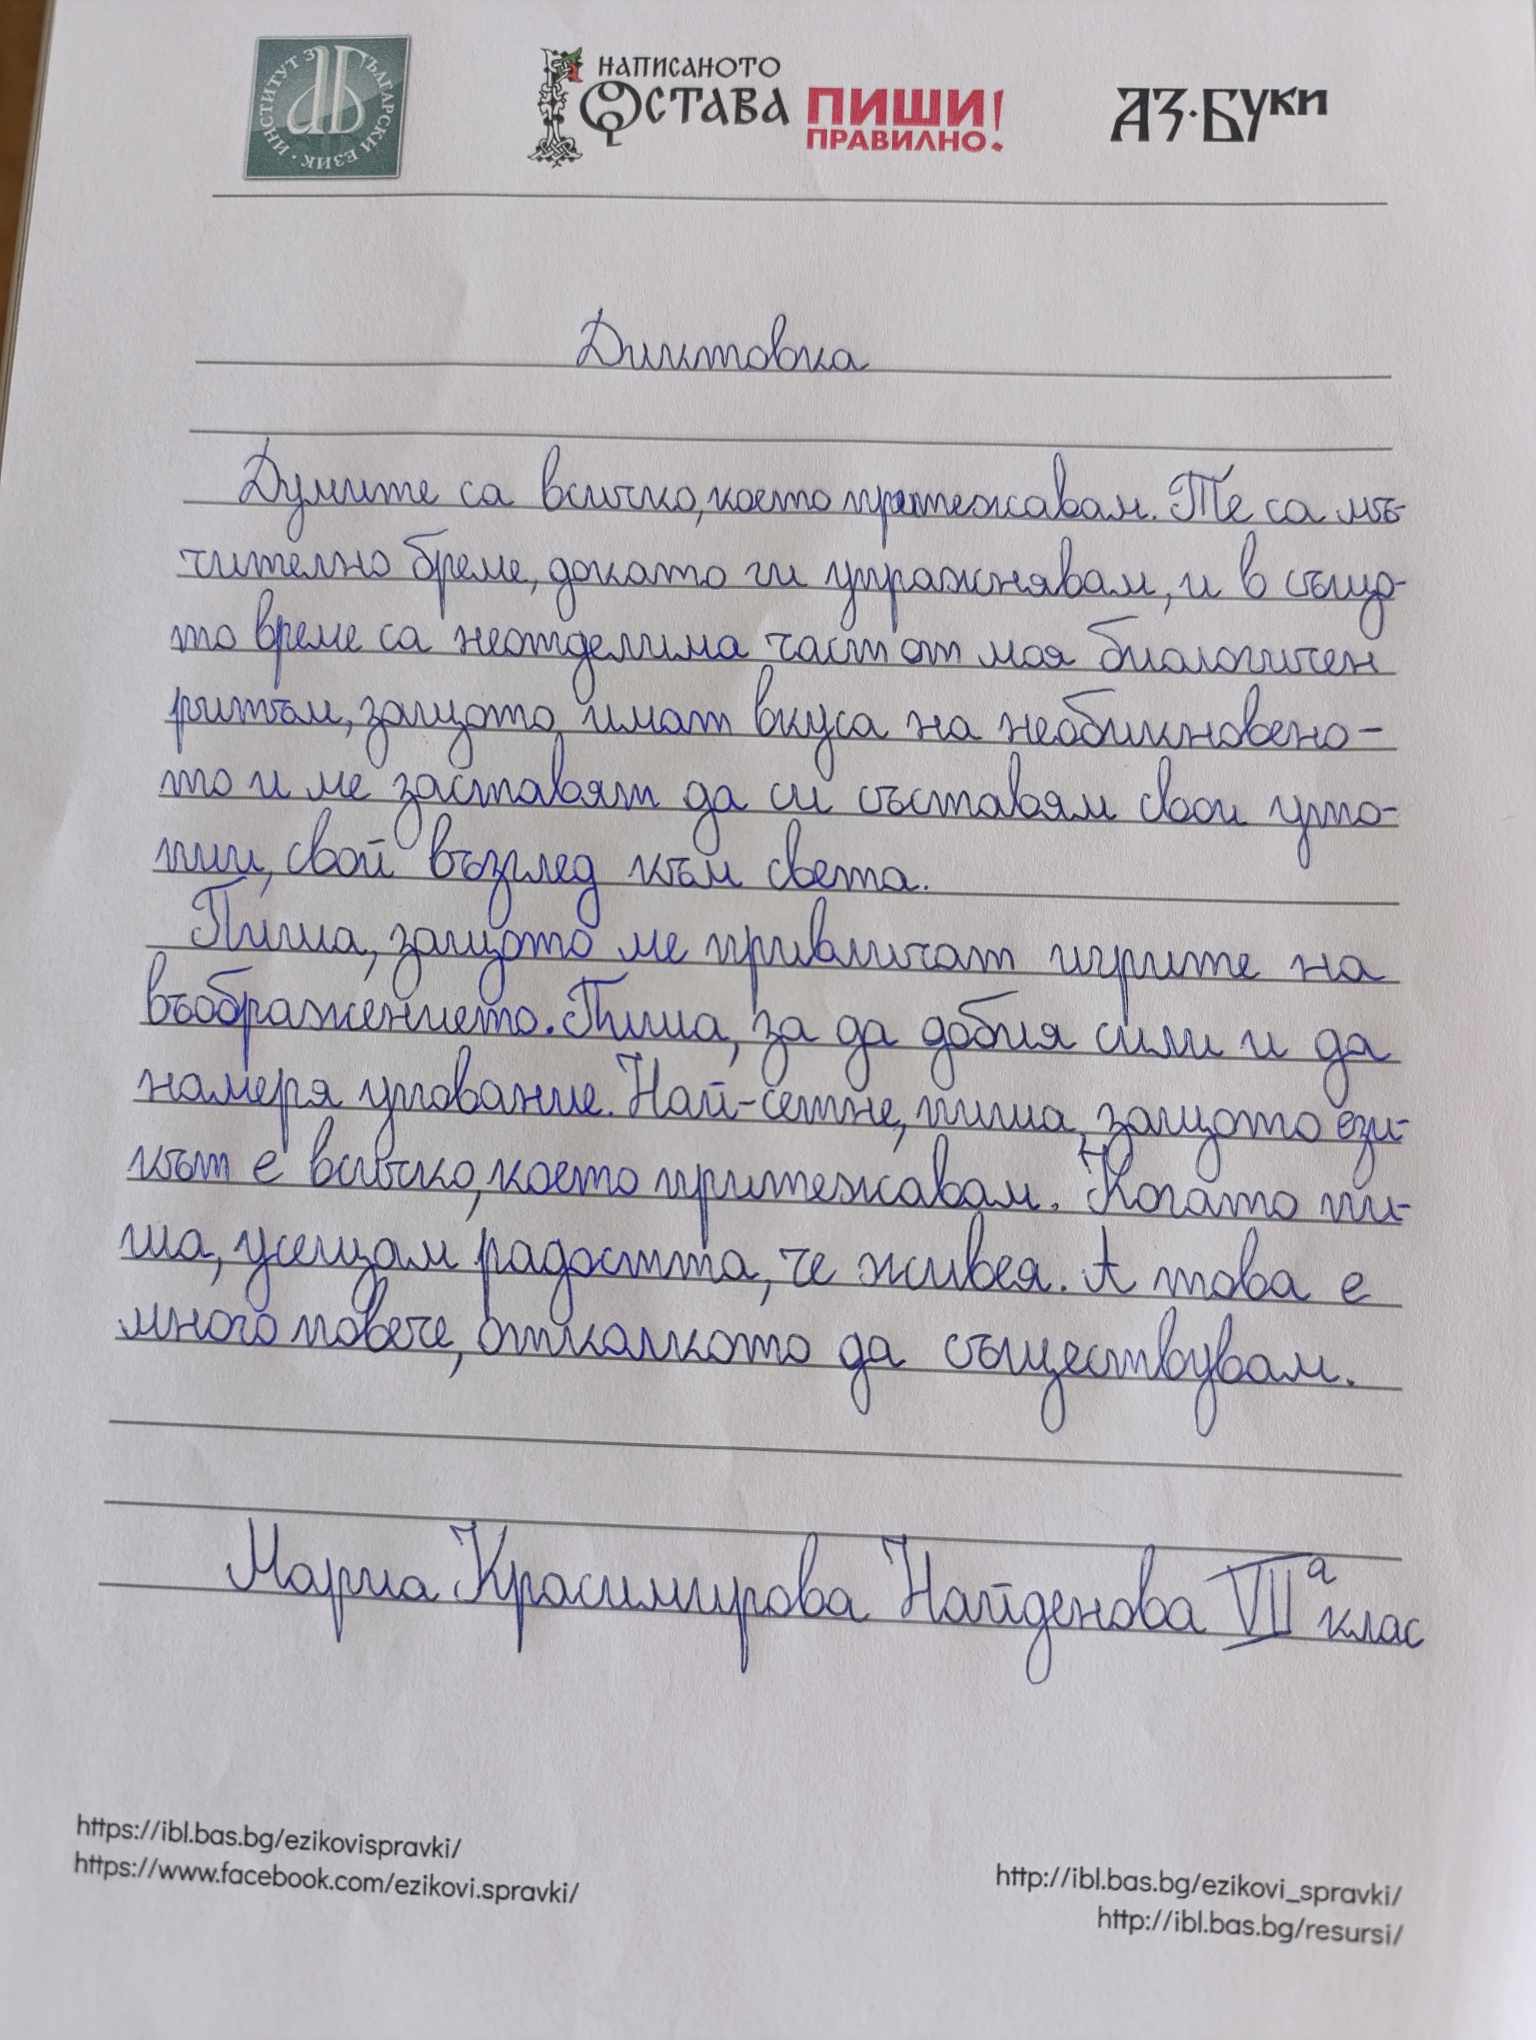 ИНСТИТУТ ЗА БЪЛГАРСКИ ЕЗИК
НАПИСАНОТО
ОСТАВА ПИШИ!
ПРАВИЛНО!
АЗ·БУКИ
Диктовка
Думите са всичко, което притежавам. Те са мъ-
чително бреме, докато ги упражнявам, и в също-
то време са неотделима част от моя биологичен
ритъм, защото имат вкуса на необикновено-
то и ме заставят да си съставям свои уто-
пии, свой възглед към света.
Пиша, защото ме привличат игрите на
въображението. Пиша, за да добия сили и да
намеря упование. Най-сетне, пиша, защото ези-
кът е всичко, което притежавам. Когато пи-
ша, усещам радостта, че живея. А това е
много повече, отколкото да съществувам.
Мариа Красимирова Найденова VII а клас
https://ibl.bas.bg/ezikovispravki/
https://www.facebook.com/ezikovi.spravki/
http://ibl.bas.bg/ezikovi_spravki/
http://ibl.bas.bg/resursi/